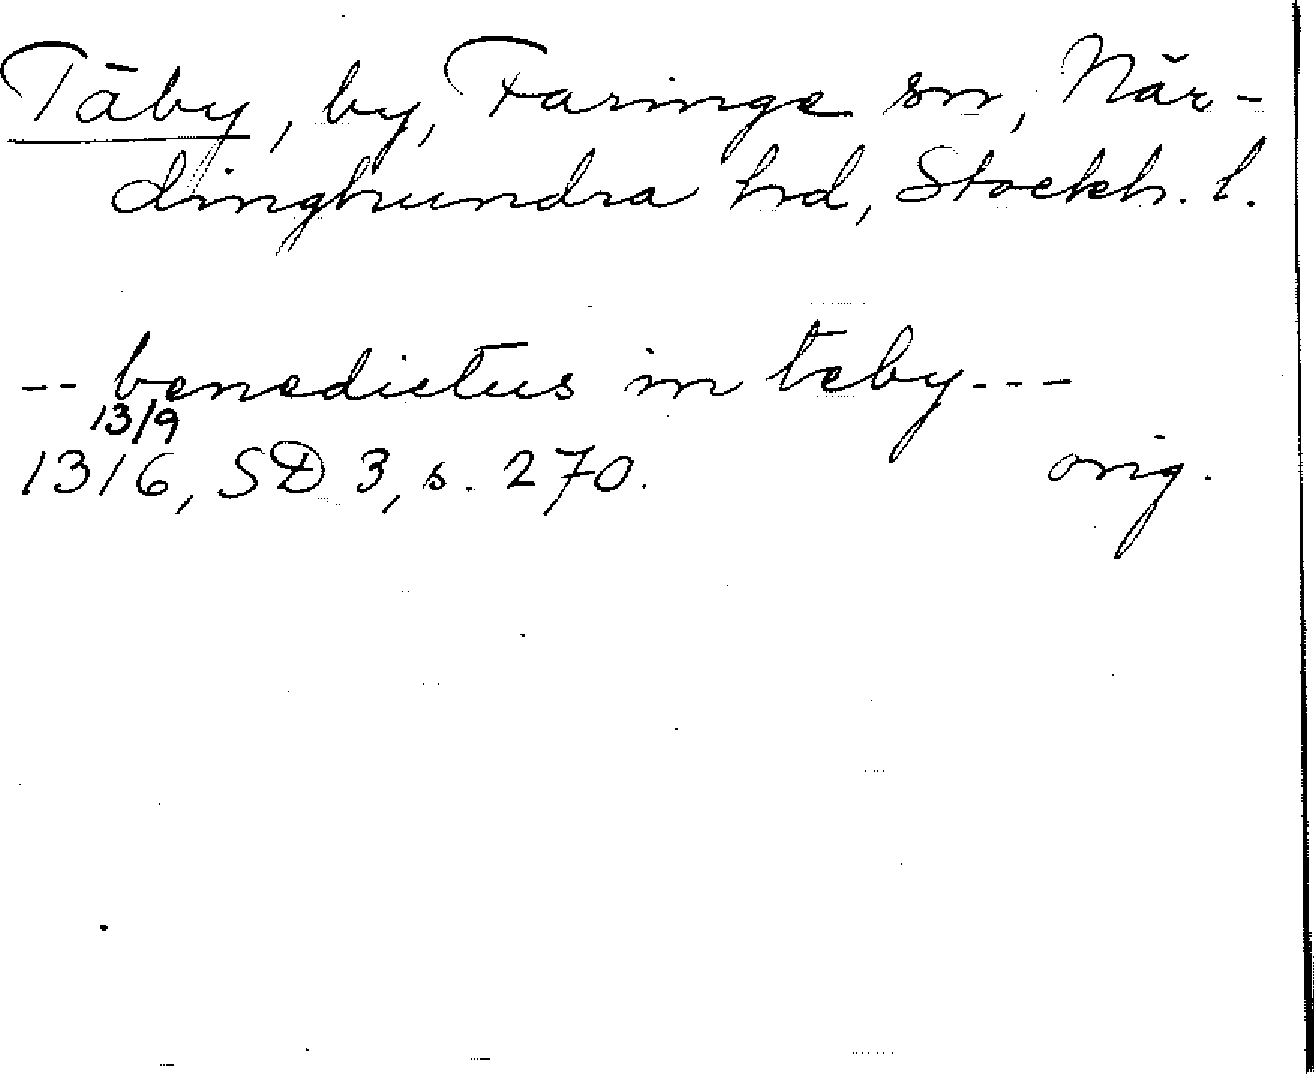 Täby, by, Faringe sn, När-
dinghundra hd, Stockh. l.
-- benedictus in teby---
13/9
1316, SD 3, s. 270. orig.